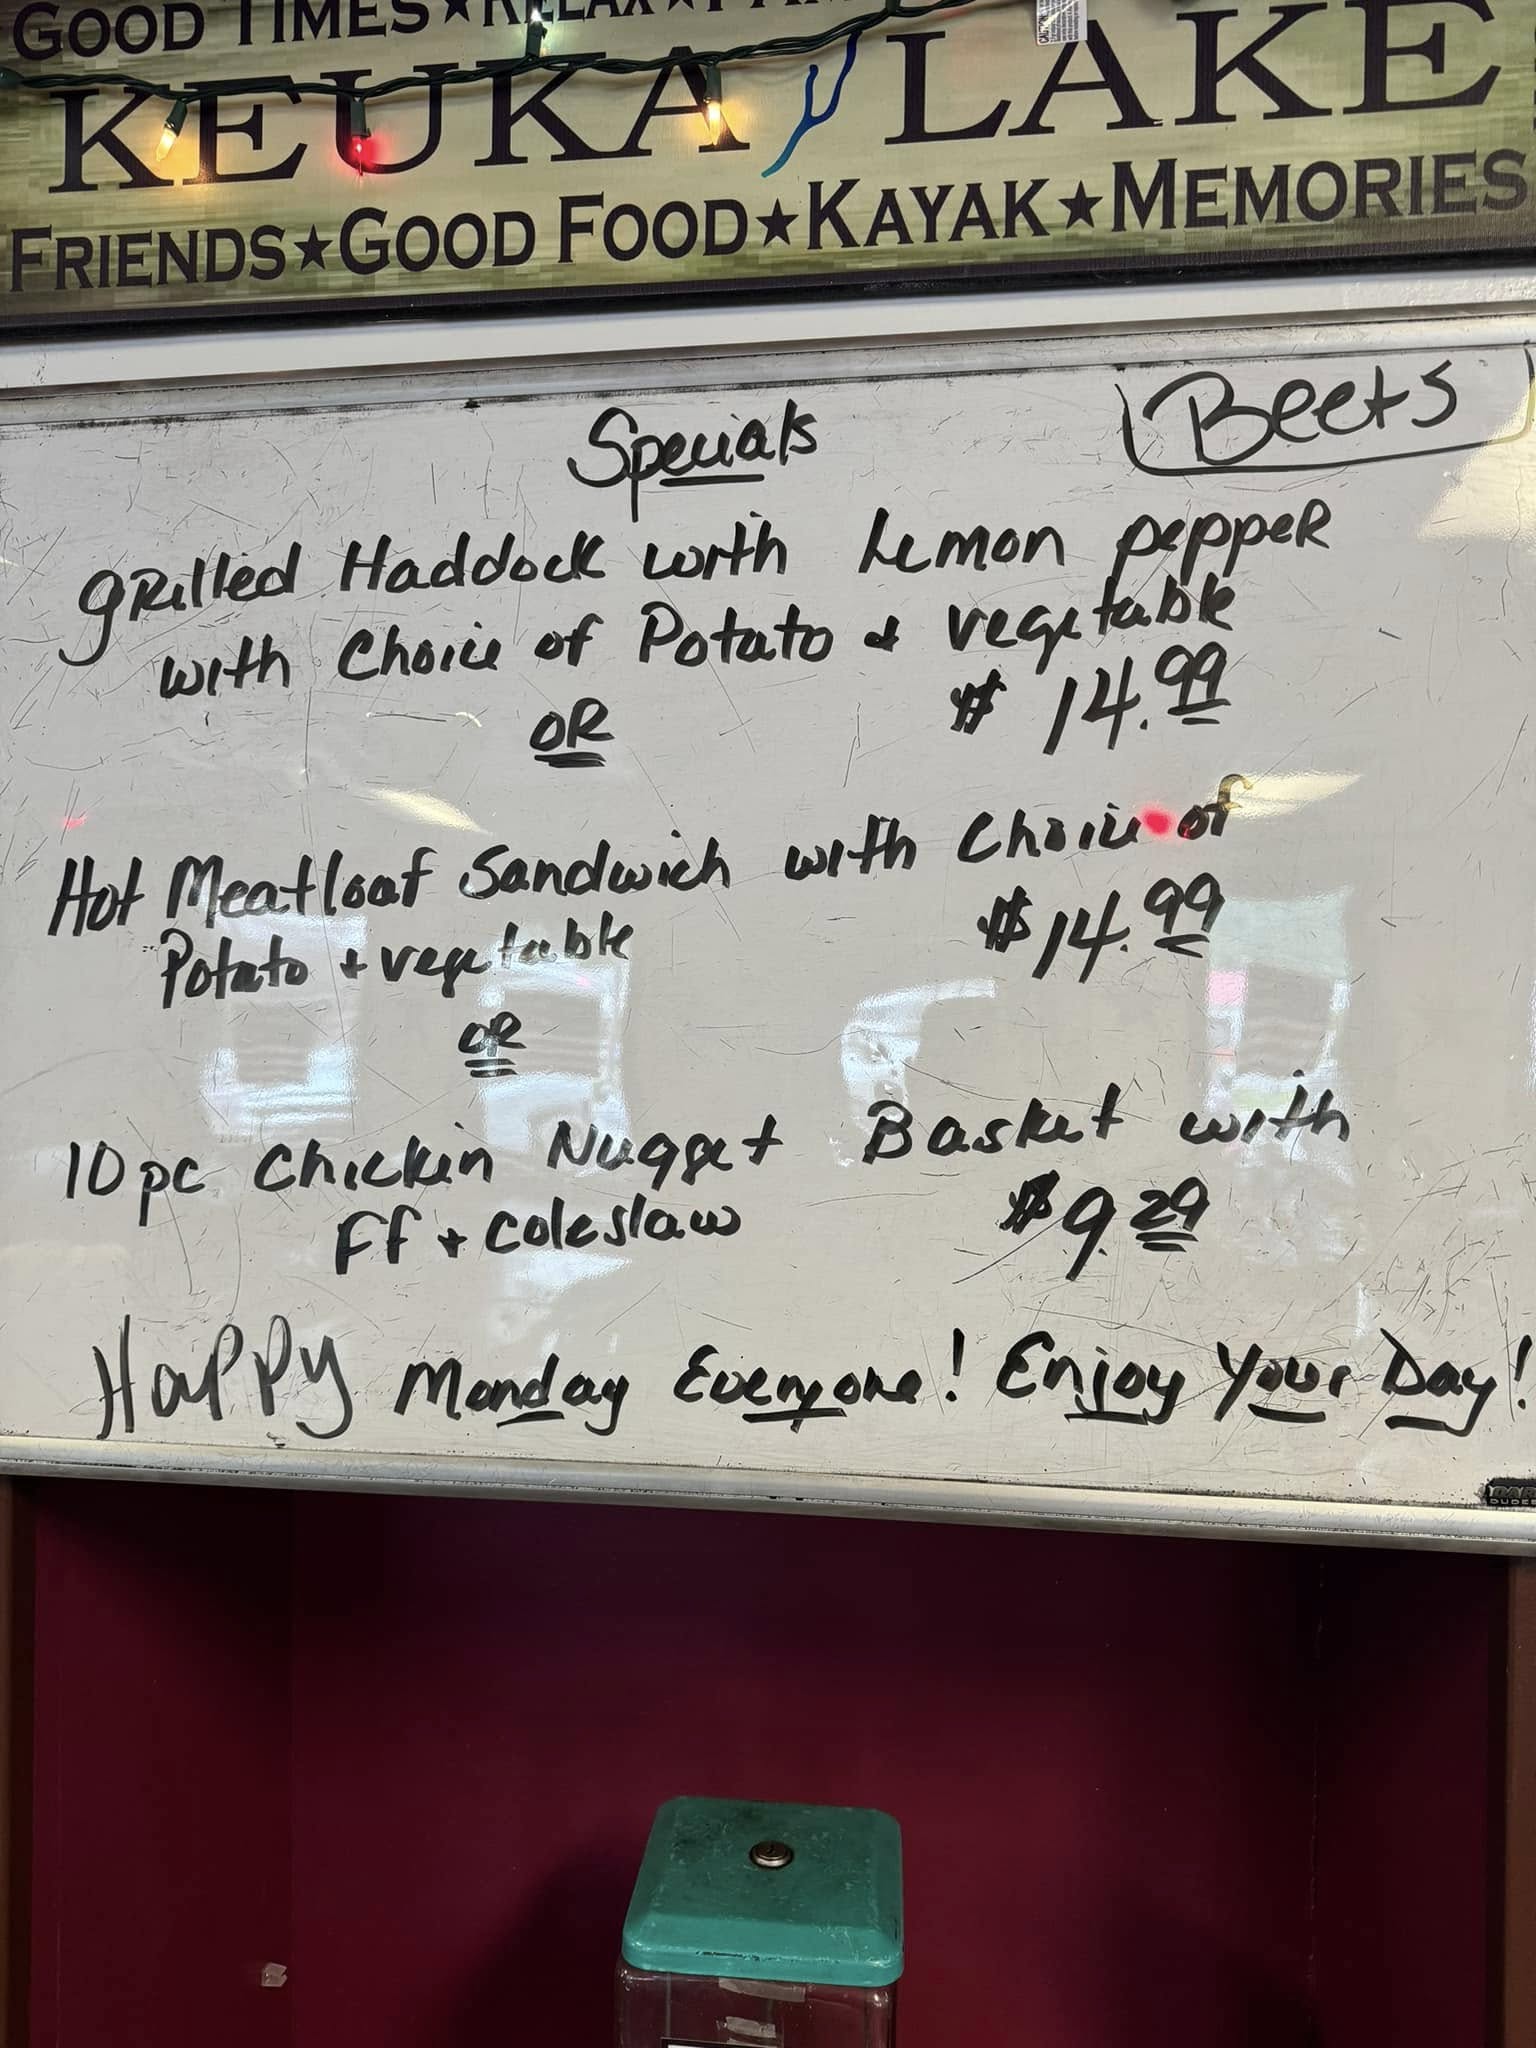 GOOD TIMES★RELAX★
KEUKA LAKE
FRIENDS★GOOD FOOD★KAYAK★MEMORIES
Beets
Specials
Grilled Haddock with Lemon pepper
with Choice of Potato + vegetable
$14.99
OR
Hot Meatloaf Sandwich with Choice of
Potato + vegetable $14.99
OR
10pc Chicken Nugget Basket with
FF + Coleslaw $9.29
Happy Monday Everyone! Enjoy Your Day!